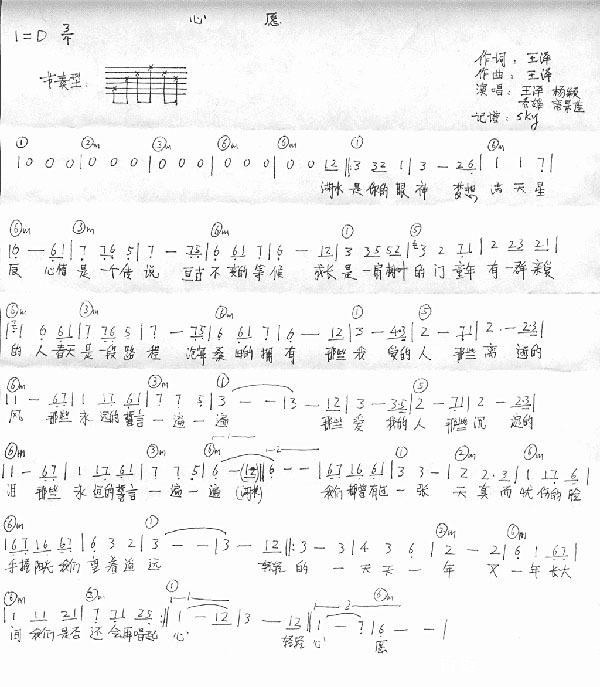 心 愿
1=D 3/4
作词: 王泽
节奏型: 作曲: 王泽
演唱: 王泽 杨颖
秀雄 高景连
记谱: sky
① ③m ⑥m ①
| 0 0 0 | 0 0 0 | 0 0 0 | 0 0 0 | 0 0 12 ||: 3 32 1 | 3 — 26 | 1 1 7 |
湖水 是 你的 眼神 梦想 满 天 星
6 — 61 | 7 76 5 | 7 — 75 | 6 61 7 | 6 — 12 | 3 35 52 | 3 2 71 | 2 23 21 |
辰 心情 是 一个 传 说 亘古 不 变的 等 候 成长 是 一扇 树叶 的 门 童年 有 一群 亲爱
1 6 61 | 7 76 5 | 7 — 75 | 6 61 7 | 6 — 12 | 3 — 43 | 2 — 71 | 2 — 23 |
的 人 春天 是 一段 路 程 沧海 桑 田的 拥 有 那些 我 爱的 人 那些 离 逝的
1 1 — 67 | 1 17 61 | 7 7 5 | 3 — — | 3 — 12 | 3 — 35 | 2 — 71 | 2 — 23 |
风 那些 永 远的 誓言 一 遍 一 遍 那些 爱 我的 人 那些 沉 泪的
1 1 — 67 | 1 17 61 | 7 7 5 | 6 — (12) :|| 6 — — | 67 16 61 | 3 3 — | 2 2 · 3 | 1 17 6 |
泪 那些 永 远的 誓言 一 遍 一 遍 (湖水) 我们 都曾 有过 一 张 天 真 而 忧伤的 脸
67 16 67 | 6 3 2 | 3 — — | 3 — 12 ||: 3 — 3 | 4 3 6 | 2 — 2 | 6 1 67 |
手握 阳光 我们 望 着 遥 远 轻轻 的 一 天 天 一 年 又 一 年 长大
1 11 21 | 7 71 25 :|| 1 — 12 | 3 — 12 || 1 — 7 | 6 — — |
间 我们 是否 还 会再 唱起 心 轻轻 心 愿